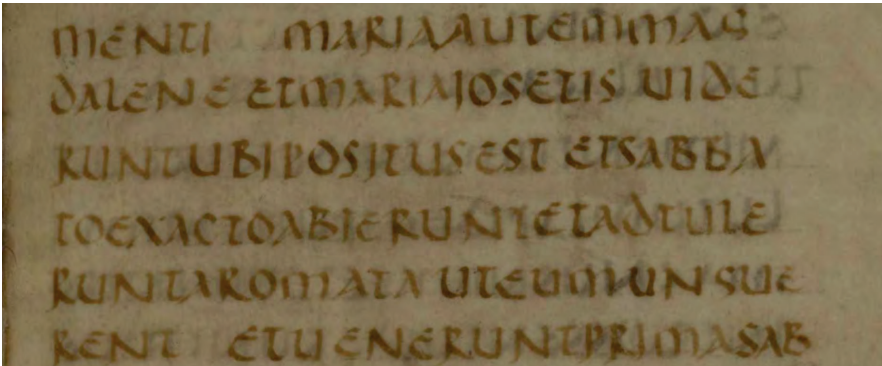 MENTI MARIAAUTEMMAG
DALENE ETMARIAIOSETIS UIDE
RUNTUBIPOSITUSEST ETSABBA
TOEXACTOABIERUNTETADTULE
RUNTAROMATA UTEUMUNGUE
RENT ETUENERUNTPRIMASAB